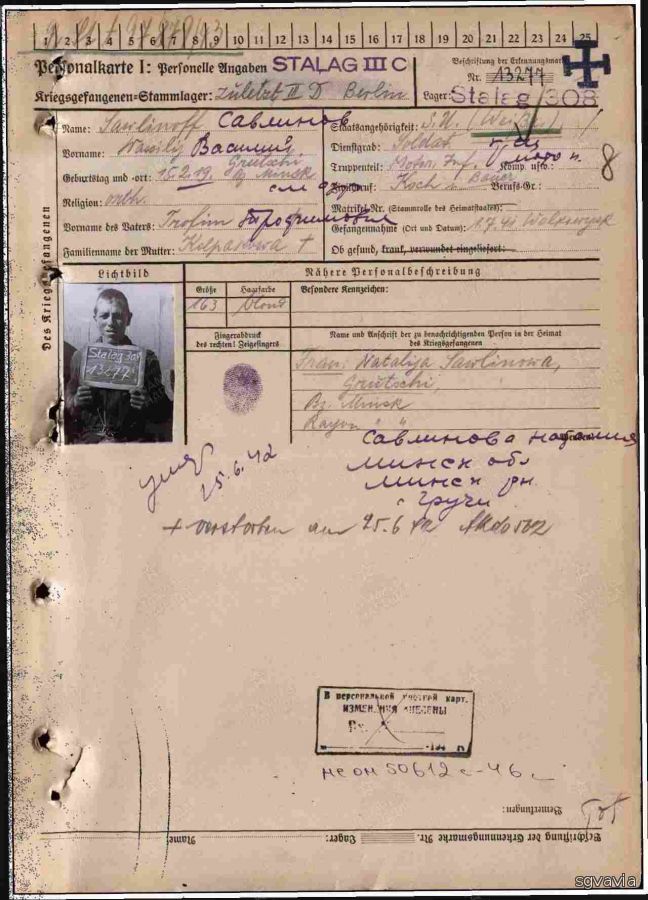 1 2 3 4 5 6 7 8 9 10 11 12 13 14 15 16 17 18 19 20 21 22 23 24 25
Personalkarte I: Personelle Angaben
STALAG III C
Beschriftung der Erkennungsmarke
Nr. 13277
Kriegsgefangenen-Stammlager: zuletzt III D Berlin
Lager: Stalag 308
Name: Sawlinoff Савлинов
Staatsangehörigkeit: S.U.
Vorname: Wasilij Василий
Dienstgrad: Soldat
Grutschi
Truppenteil: Motor. Inf. Komp. usw.:
8
Geburtstag und -ort: 15.2.19. Bz. Minsk
Zivilberuf: Koch u. Bauer Berufs-Gr.:
Religion: orth.
Matrikel Nr. (Stammrolle des Heimatstaates):
Vorname des Vaters: Trofim Трофимович
Gefangennahme (Ort und Datum): 1.7.41 Wolkowysk
Familienname der Mutter: Kolpasowa †
Ob gesund, krank, verwundet eingeliefert:
Des Kriegsgefangenen
Lichtbild
Nähere Personalbeschreibung
Größe
Haarfarbe
Besondere Kennzeichen:
163
blond
Stalag 308
13277
Fingerabdruck
des rechten! Zeigefingers
Name und Anschrift der zu benachrichtigenden Person in der Heimat
des Kriegsgefangenen
Frau: Natalija Sawlinowa,
Grutschi,
Bz. Minsk
Rayon " "
Савлинова Наталия
Минск обл
Минск рн.
Гручи
умер
25.6.42
+ verstorben am 25.6.42
В персональной учетной карт.
ИЗМЕНЕНИЯ ВНЕСЕНЫ
Вх.
50612с-46
Bemerkungen:
Beschriftung der Erkennungsmarke Nr.
Lager:
Name
sgvavia